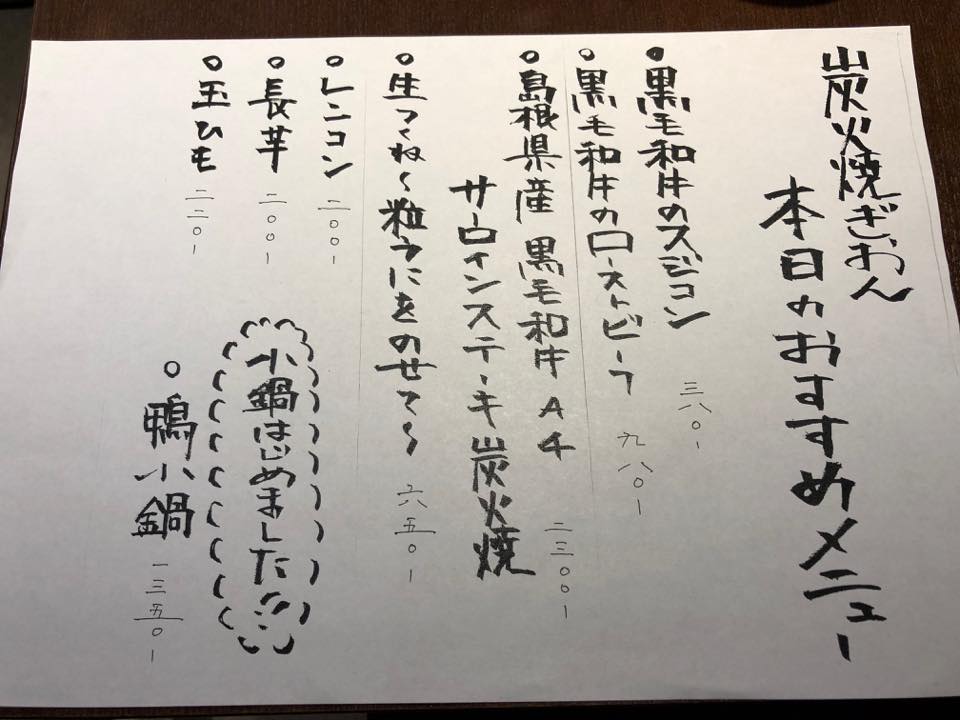 炭火焼ぎおん
本日のおすすめメニュー
○黒毛和牛のスジコン 三八〇-
○黒毛和牛のローストビーフ 九八〇-
○島根県産 黒毛和牛 A4
サーロインステーキ炭火焼 二三〇〇-
○生つくね〜粒うにをのせて〜 六五〇-
○レンコン 二〇〇-
○長芋 二〇〇-
○玉ひも 二二〇-
小鍋はじめました!!
○鴨小鍋 一三五〇-